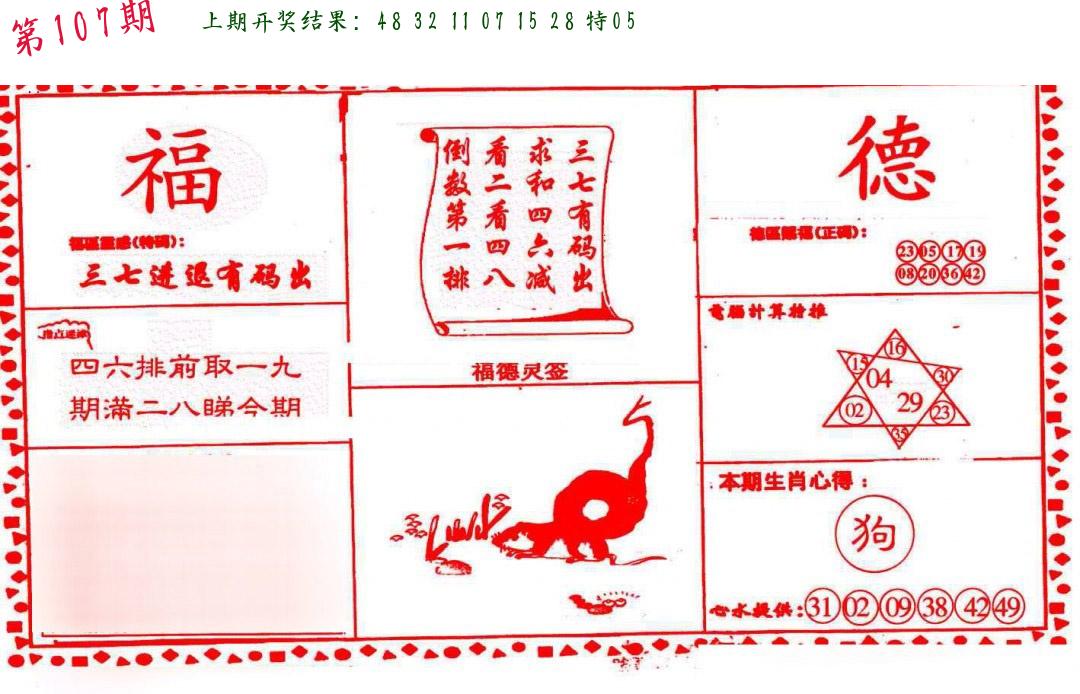 第107期
上期开奖结果: 48 32 11 07 15 28 特05
福
福區靈感(特碼):
三七进退有码出
四六排前取一九
期滿二八睇今期
三七有码出
求和四六减
看二看四八
倒数第一排
福德灵签
德
德區賜福(正碼):
23 05 17 19
08 20 36 42
電腦計算特推
16
15
30
04
29
02
23
35
本期生肖心得:
狗
心水提供: 31 02 09 38 42 49